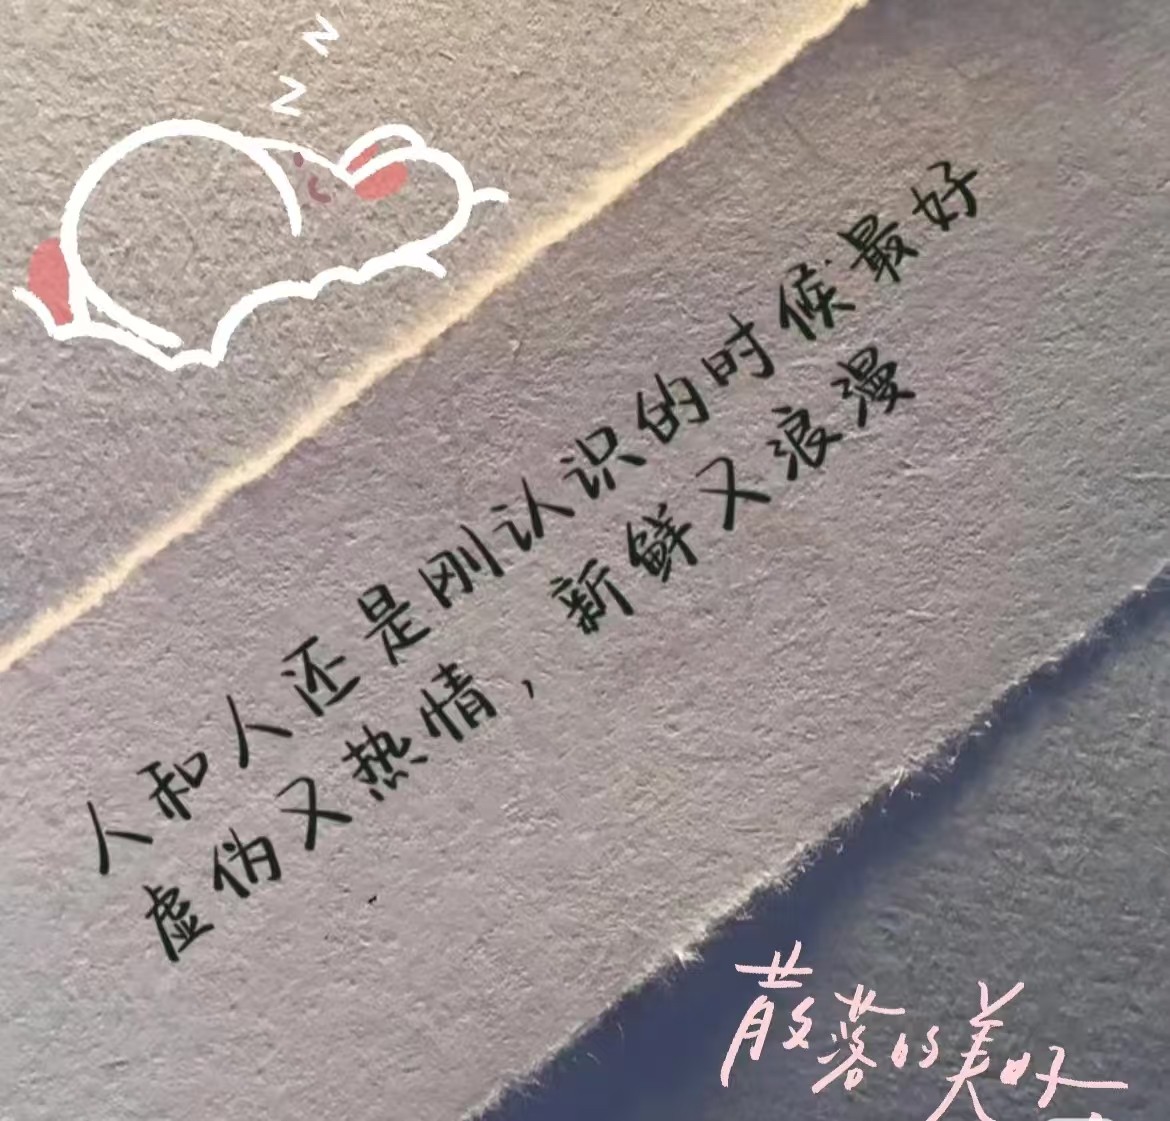 z
z
人和人还是刚认识的时候最好
虚伪又热情，新鲜又浪漫
散落的美好